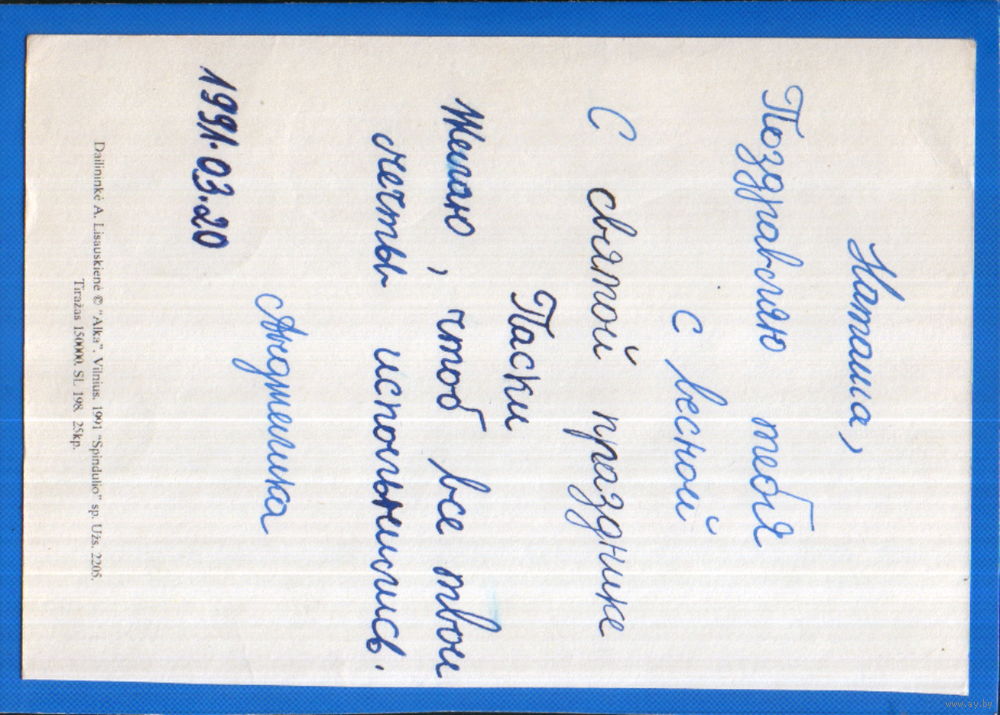 Наташа,
Поздравляю тебя
с весной
С святой празднике
Паски
Желаю, чтоб все твои
мечты испольнились.
Анджелика
1991.03.20
Dailininkė A. Lisauskienė © "Alka". Vilnius. 1991 "Spindulio" sp. Užs. 2205.
Tiražas 150000. SL 198. 25kp.
www.ay.by